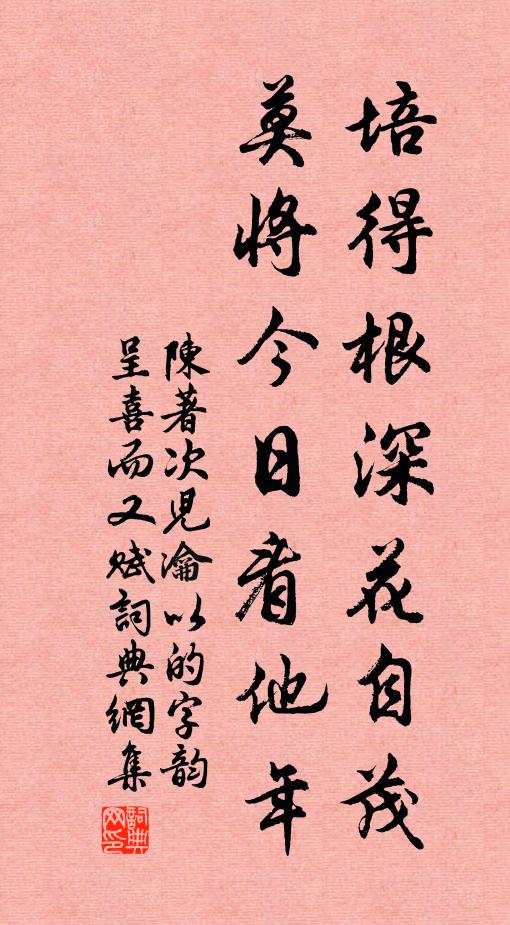 培得根深花自茂
莫將今日看他年
陳著次兒瀹以的字韵
呈喜而又賦詞典網集
詞典网印